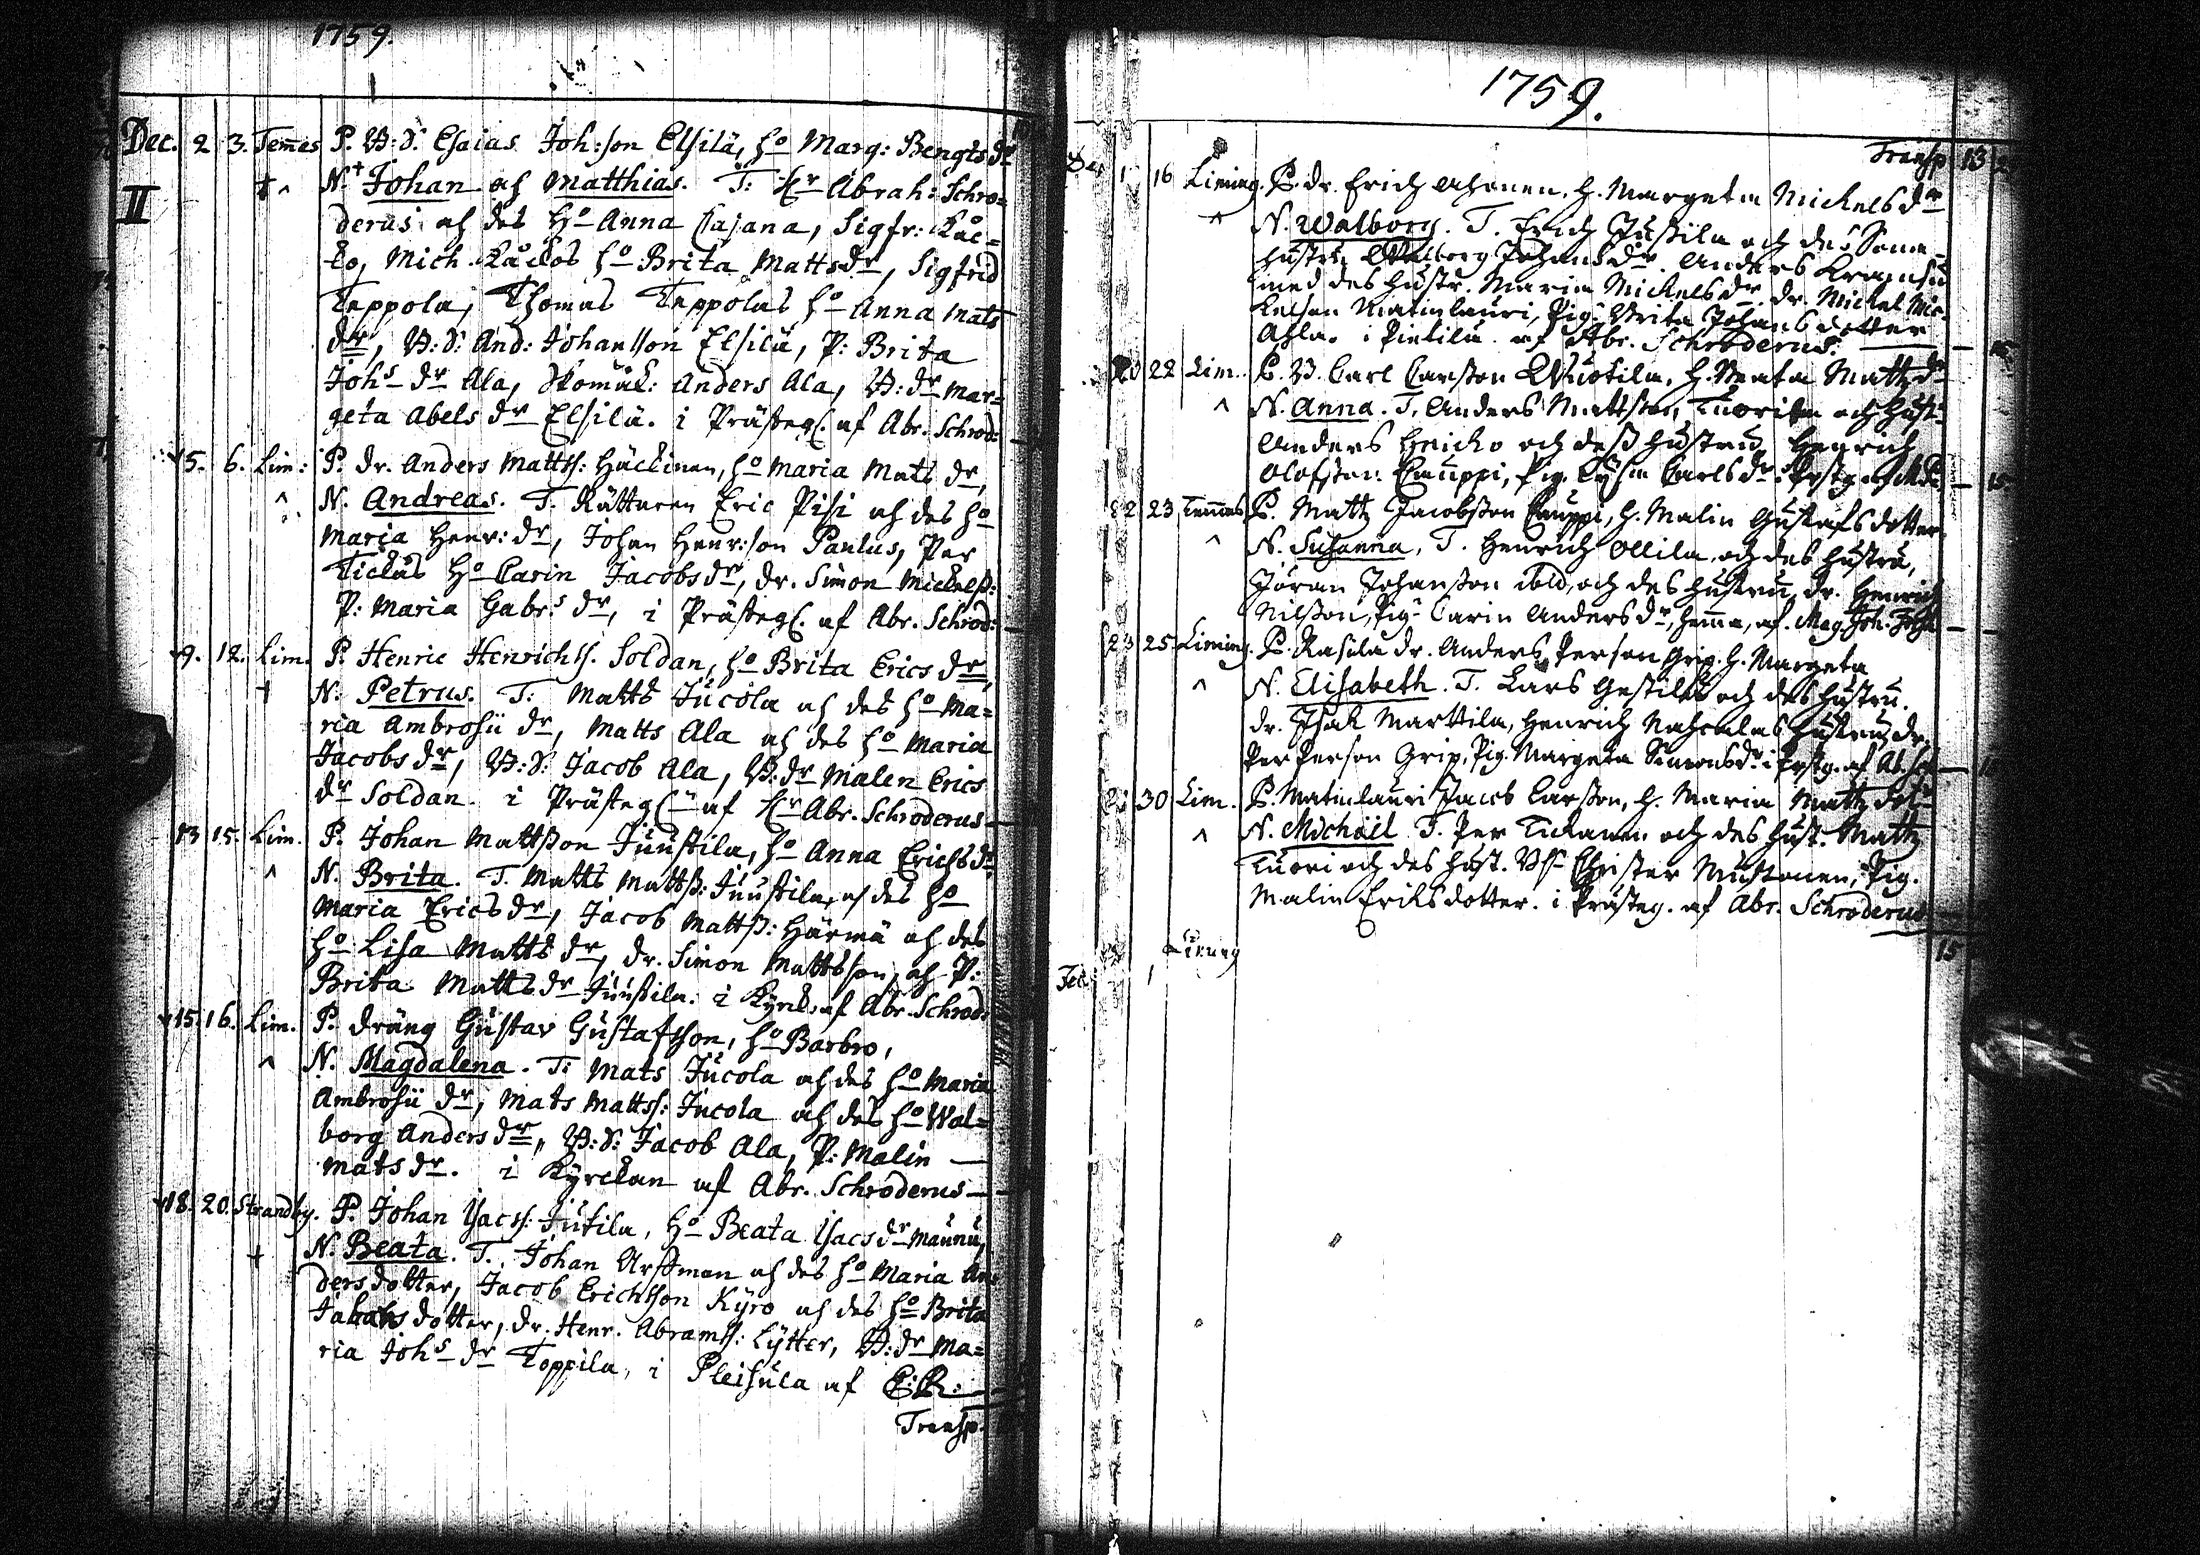 1759.
Dec. 2 3. Temmes P. B: S. Esaias Joh:son Elsilä, ho Marg: Bengts dr
II N. Johan och Matthias. T: Hr Abrah: Schro=
derus och des Ho Anna Cajana, Sigfr: Kåc=
ko, Mich. Kåckos ho Brita Matts dr, Sigfrid
Teppola, Thomas Teppolas ho Anna Mats
dr, B: S: And: Johansson Elsilä, P: Brita
Johs dr Ala, Skomak: Anders Ala, B: dr Mar=
geta Abels dr Elsilä. i Prästeg. af Abr. Schrod:
5. 6. Lim: P. dr. Anders Mattss: Häckinen, ho Maria Mats dr,
N. Andreas. T. Rättaren Eric Pisi och des ho
Maria Henr: dr, Johan Henr:son Paulus, Per
Tickas Ho Carin Jacobs dr, dr. Simon Mickelss:
P: Maria Gabrs dr, i Prästeg. af Abr. Schrod:
9. 12. Lim. P. Henric Henrichss. Soldan, ho Brita Erics dr,
N. Petrus. T: Matts Jucola och des ho Ma=
ria Ambrosii dr, Matts Ala och des ho Maria
Jacobs dr, B: S: Jacob Ala, B: dr Malen Erics
dr Soldan. i Prästeg. af Hr Abr. Schroderus
13 15. Lim. P. Johan Mattsson Juustila, ho Anna Erichs dr
N. Brita. T. Matts Mattss: Juustila, och des ho
Maria Erics dr, Jacob Mattss: Härmä och des
ho Lisa Matts dr, dr. Simon Mattsson och P:
Brita Matts dr Juustila. i Kyrck. af Abr. Schrod:
15. 16. Lim. P. dräng Gustav Gustafsson, ho Barbro,
N. Magdalena. T: Mats Jucola och des ho Maria
Ambrosii dr, Mats Mattss: Jucola och des ho Wal=
borg Anders dr, B: S: Jacob Ala, P: Malin
Mats dr. i Kyrckan af Abr. Schroderus
18. 20. Strandby. P. Johan Isacss: Jutila, Ho Beata Isacs dr Maunu,
N. Beata. T. Johan Urstman och des ho Maria An
dersdotter, Jacob Erichsson Kyrö och des ho Brita
Jakobsdotter, dr. Henr. Abramss: Lytter, B: dr Ma=
ria Johs dr Toppila, i Pleisula af E: R:
Transp.
1759.
Transp 13
16 Liming. P. dr. Erich Ahonen, H. Margeta Mickels dr
N. Walborg. T. Erich Jussila och des Sone=
hustru Walborg Johans dr. Anders Kranku
med des hustr. Maria Mickels dr. dr. Mickel Mic
kelson Matinlauri, Pig. Brita Johansdotter
i Pietilä af Abr. Schroderus.
22 Lim. P. B. Carl Carsson, H. Beata Matts dr
N. Anna. T. Anders Mattsson Tuorila och hust:
Anders Heicko och dess hustru, Henrich
Olofsson Cauppi, Pig. Carls dr. Prstg.
23 Temmes P. Matts Jacobsson Cauppi, H. Malin Gustafsdotter
N. Susanna, T. Henrich Ollila och des hustru,
Jöran Johansson och des hustru, dr. Henrich
Nilsson, Pig. Carin Anders dr, hemma, af. Mag. Joh.
25 Liming. P. Rasila dr. Anders Person Grip. H. Margeta
N. Elisabeth. T. Lars Gestila och des hustru.
dr. Isak Marttila, Henrich hustru, dr.
Per Person Grip, Pig. Margeta Simons dr i Prstg. af Ab. Sch
30 Lim. P. Matinlauri Jacob Carsson, H. Maria Matts dr
N. Michaël. T. Per Tickanen och des hust. Matts
Tuori och des hust. Christer Mustonen, Pig.
Malin Eriksdotter. i Prästeg. af Abr. Schroderus
15